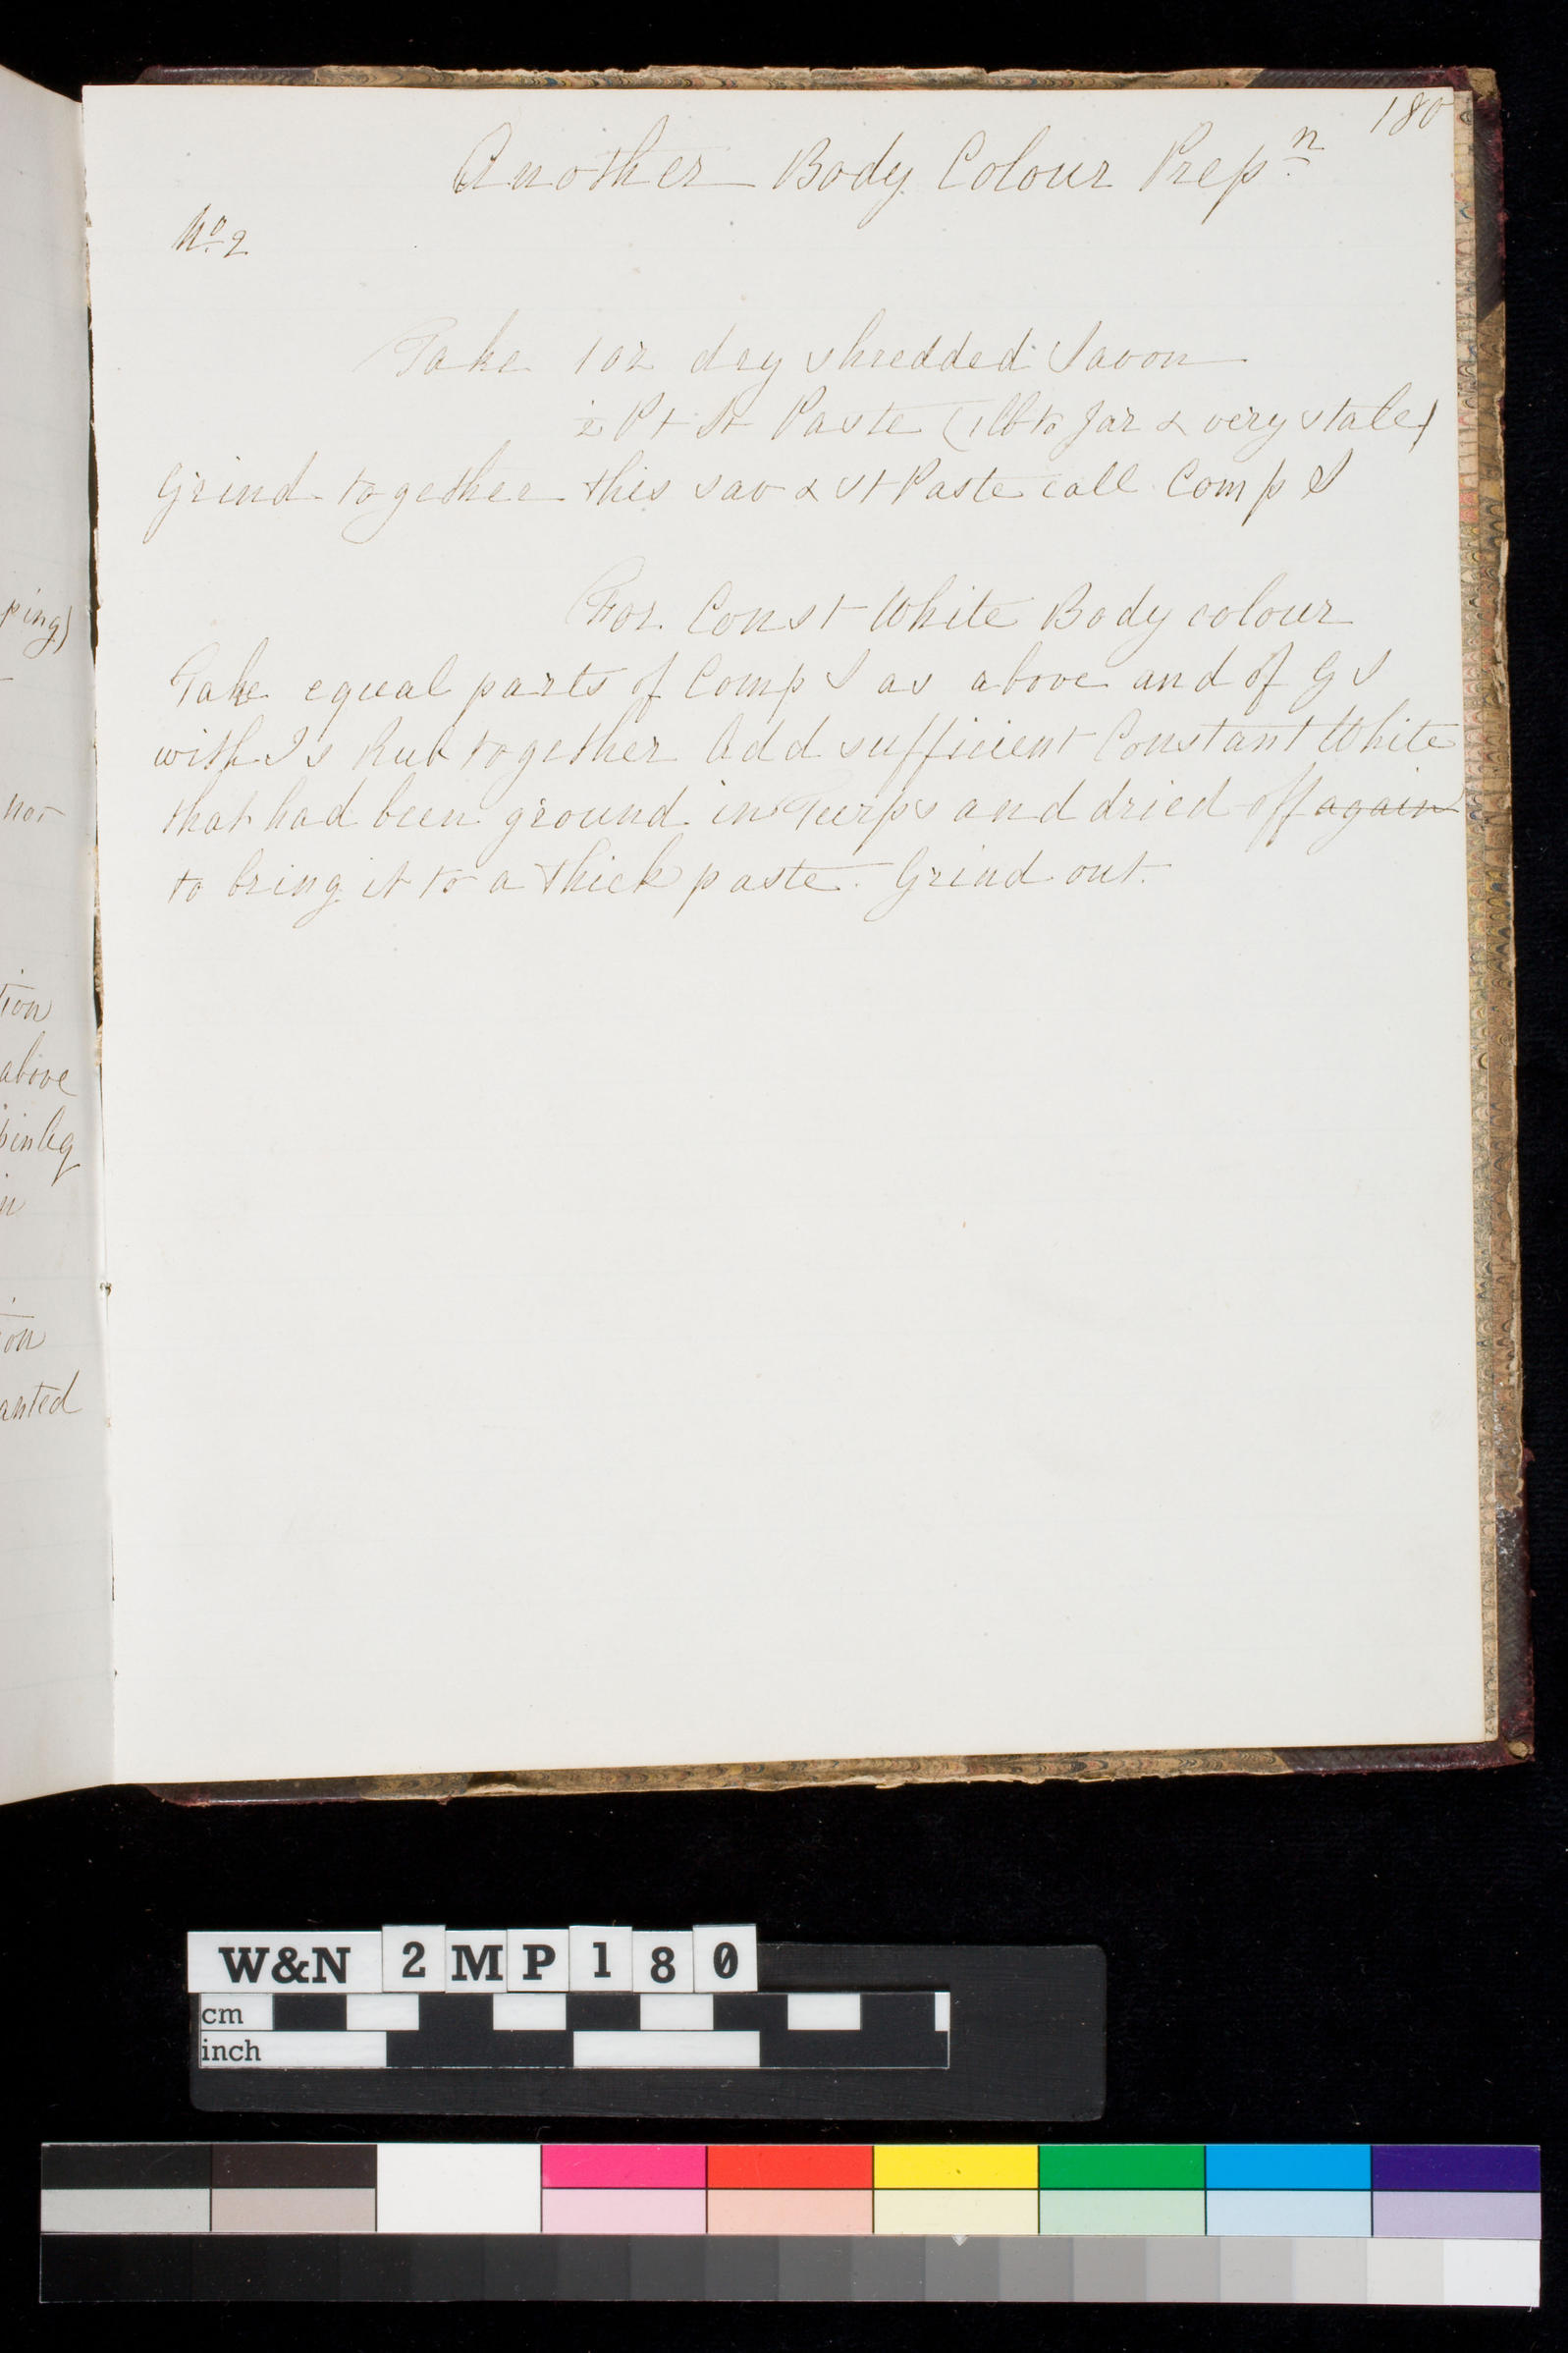 180
Another Body Colour Prepⁿ
Nº 2
Take 1 oz dry shredded Savon
½ Pt St Paste (1 lb to Jar & very stale)
Grind together this sav & St Paste call Comp S
For Const White Body colour
Take equal parts of Comp S as above and of G S
with I s Rub together Add sufficient Constant White
that had been ground in Turps and dried off again
to bring it to a thick paste. Grind out.
ping)
nor
tion
above
in
ion
anted
W&N 2MP180
cm
inch